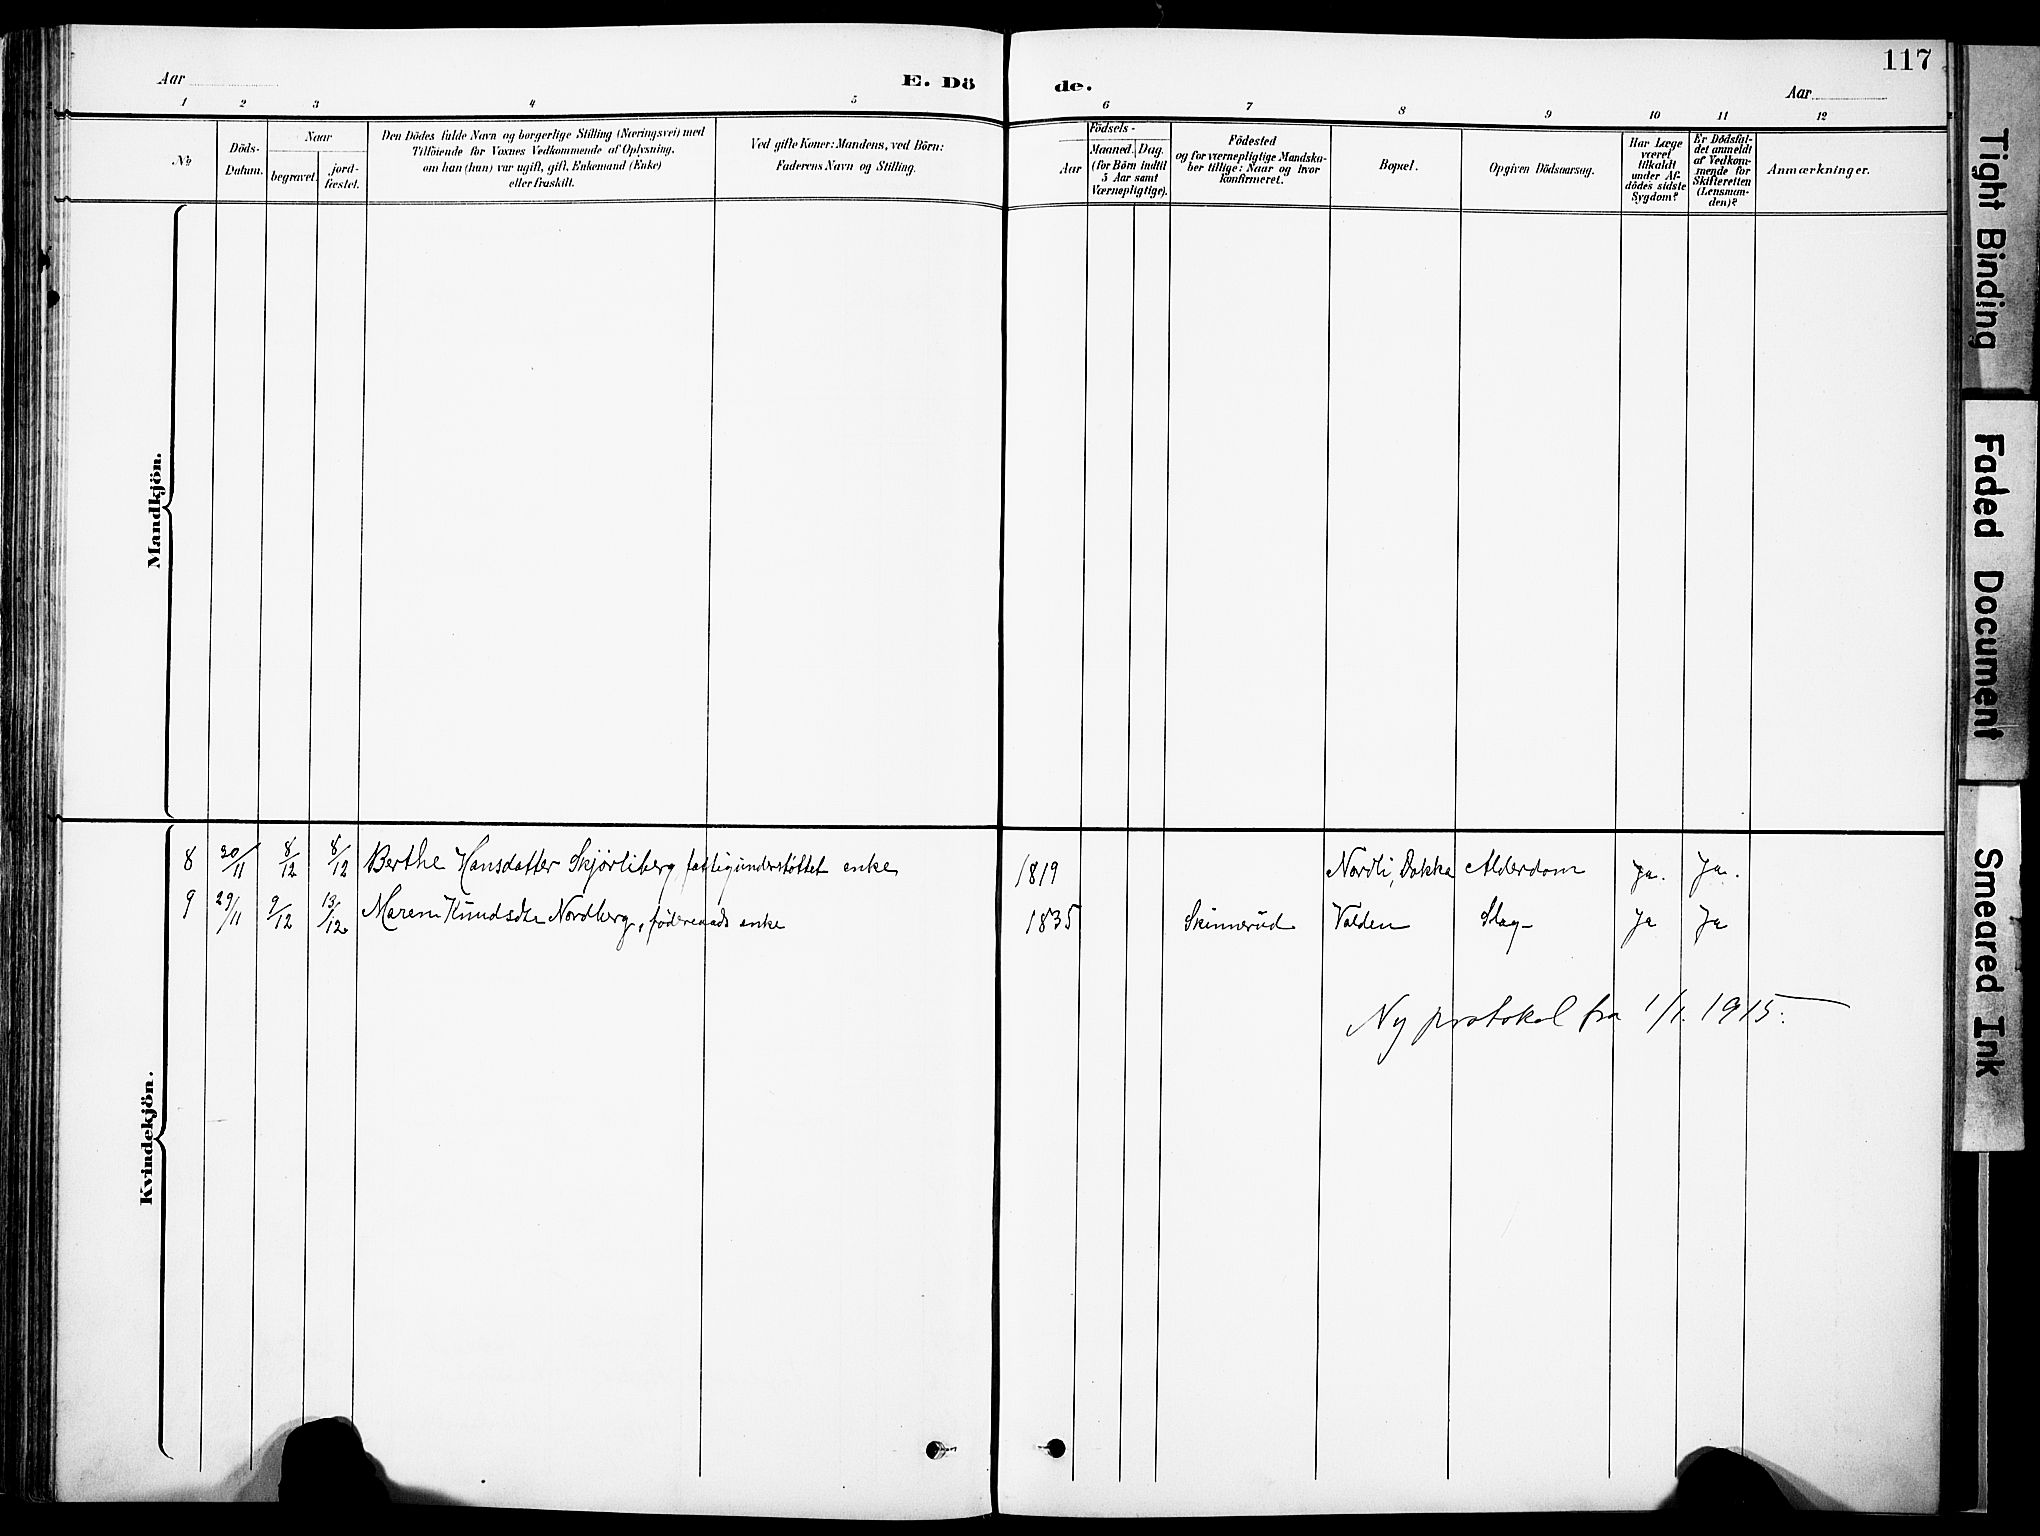 117
Aar
E. Dö de.
Aar
1 2 3 4 5 6 7 8 9 10 11 12
No
Döds-
Datum.
Naar
begravet.
jord-
fæstet.
Den Dödes fulde Navn og borgerlige Stilling (Næringsvei) med
Tilföiende for Voxnes Vedkommende af Oplysning,
om han (hun) var ugift, gift, Enkemand (Enke)
eller fraskilt.
Ved gifte Koner: Mandens, ved Börn:
Faderens Navn og Stilling.
Födsels-
Aar
Maaned. Dag.
(for Börn indtil
5 Aar samt
Værnepligtige).
Födested
og for værnepligtige Mandska-
ber tillige: Naar og hvor
konfirmeret.
Bopæl.
Opgiven Dödsaarsag.
Har Læge
været
tilkaldt
under Af-
dödes sidste
Sygdom?
Er Dödsfal-
det anmeldt
af Vedkom-
mende for
Skifteretten
(Lensman-
den)?
Anmærkninger.
Mandkjön.
Kvindekjön.
8 20/11 8/12 8/12 Berthe Hansdatter Skjørliberg fattigunderstøttet enke 1819 Nordli, Dokka Alderdom Ja. Ja.
9 29/11 9/12 13/12 Maren Knudsdtr Nordberg, føderaads enke 1835 Skinnerud Valden Slag Ja Ja
Ny protokol fra 1/1. 1915.
Tight Binding
Faded Document
Smeared Ink